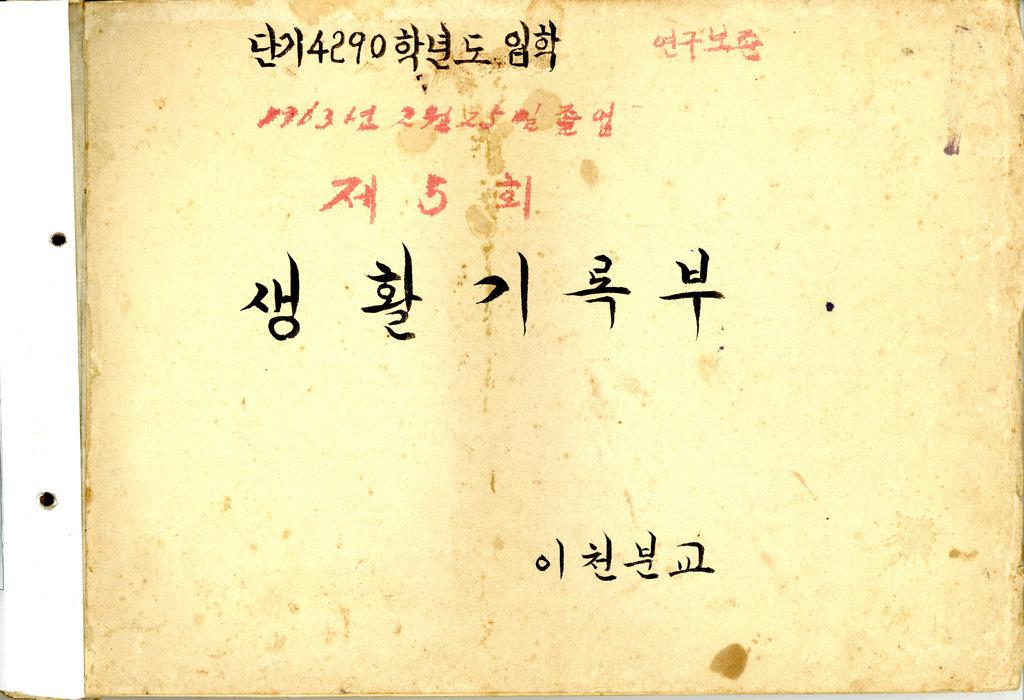 단기4290학년도 입학
연구보존
1963년 2월 25일 졸업
제 5 회
생활기록부
이천분교